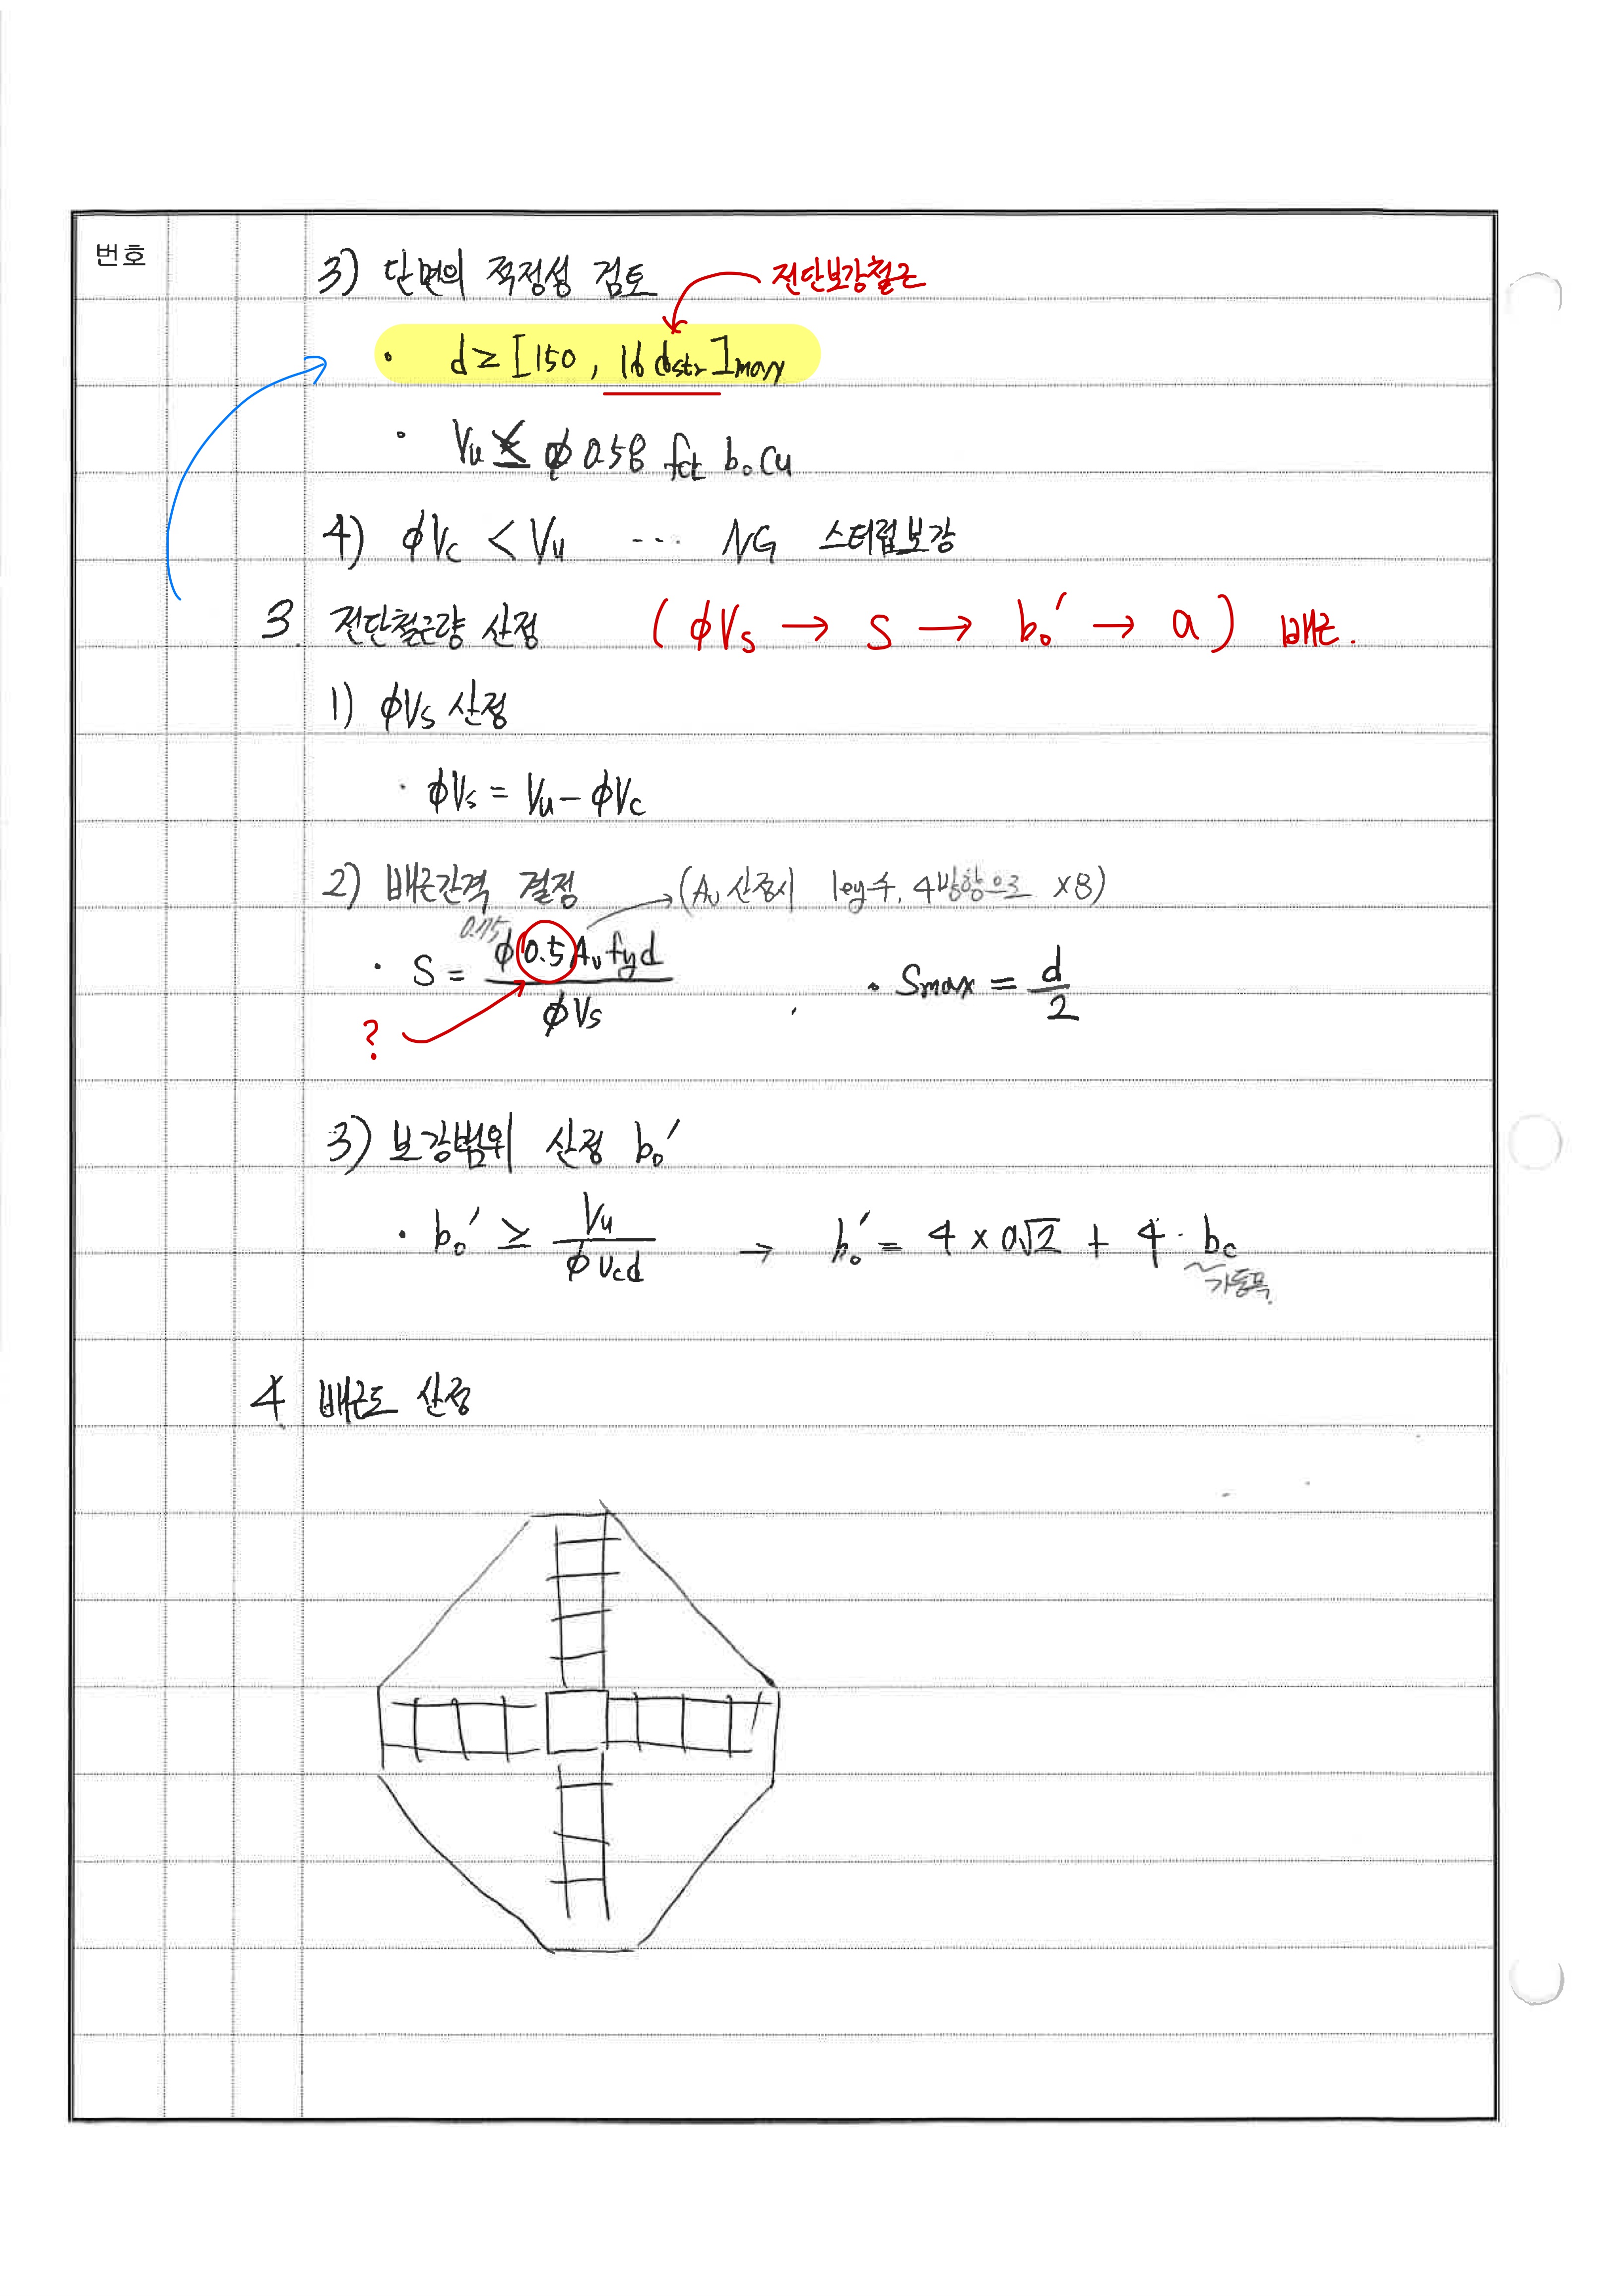 번호
3) 단면의 적정성 검토
전단보강철근
· d ≥ [150, 16 dstr]max
· Vu ≤ φ 0.58 fck b₀ Cu
4) φVc < Vu ··· NG 스터럽보강
3. 전단철근량 산정 (φVs → S → b₀′ → a) 배근.
1) φVs 산정
· φVs = Vu - φVc
2) 배근간격 결정 → (Av 산정시 leg수, 4방향으로 ×8)
0.75
· S = φ 0.5 Av fy d / φVs · Smax = d/2
?
3) 보강범위 산정 b₀′
· b₀′ ≥ Vu / φ vc d → b₀′ = 4 × a√2 + 4 · bc
기둥폭.
4 배근도 산정